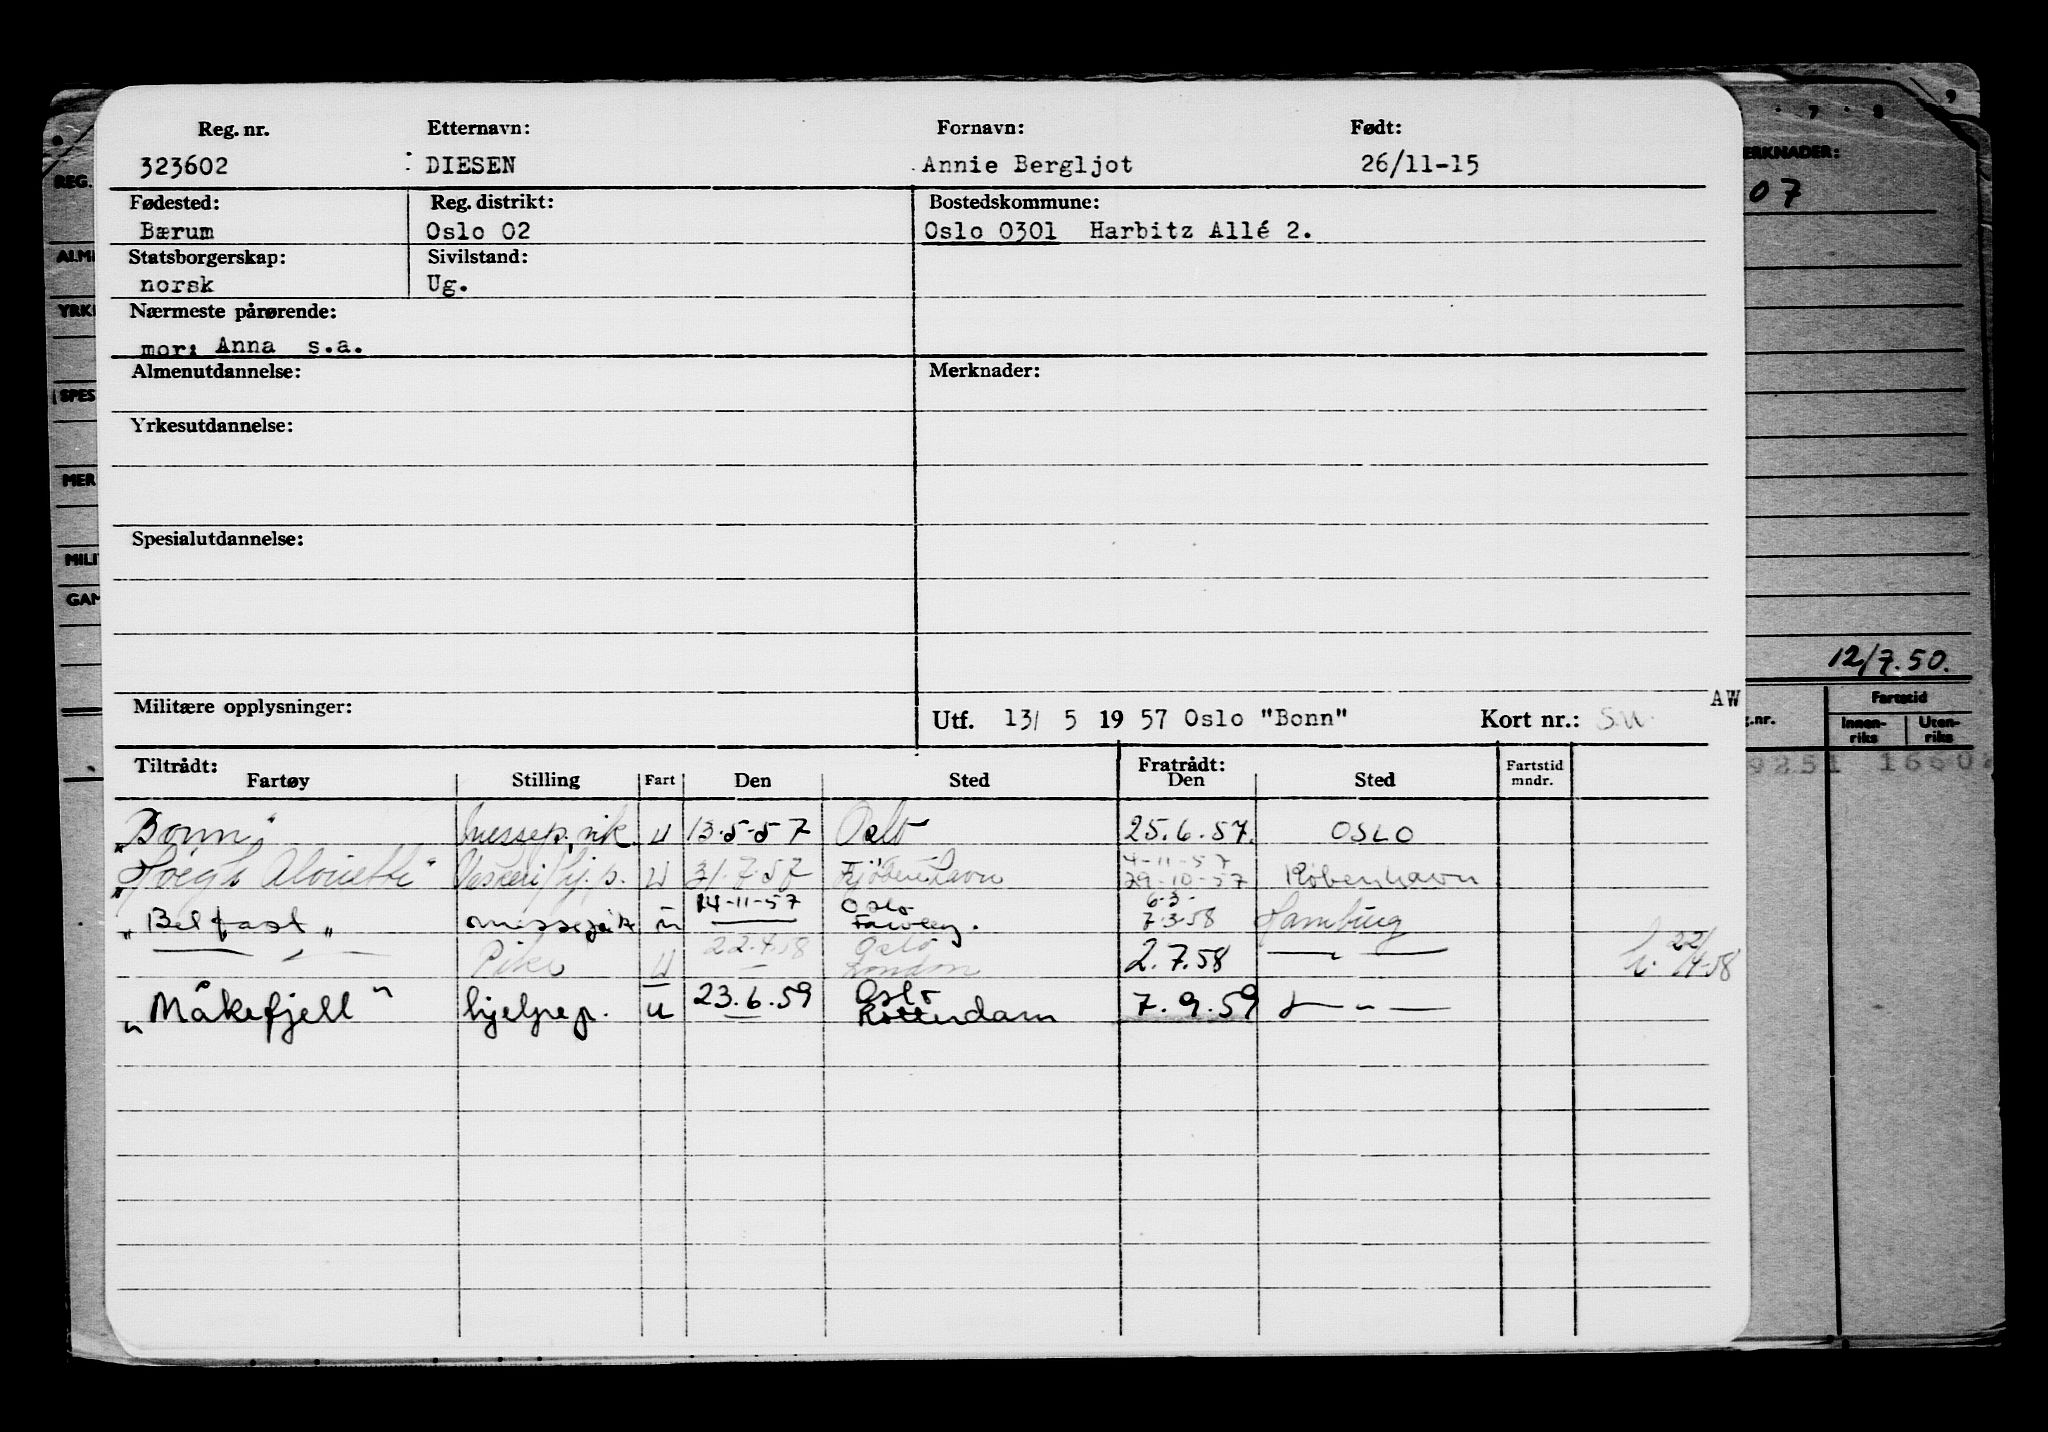 Reg. nr. Etternavn: Fornavn: Født:
323602 DIESEN Annie Bergljot 26/11-15
Fødested: Reg. distrikt: Bostedskommune:
Bærum Oslo 02 Oslo 0301 Harbitz Allé 2.
Statsborgerskap: Sivilstand:
norsk Ug.
Nærmeste pårørende:
mor: Anna s.a.
Almenutdannelse: Merknader:
Yrkesutdannelse:
Spesialutdannelse:
Militære opplysninger: Utf. 13/ 5 19 57 Oslo "Bonn" Kort nr.: S.U.
AW
Tiltrådt: Fratrådt:
Fartøy Stilling Fart Den Sted Den Sted Fartstid mndr.
"Bonn" messep. vik. u 13-5-57 Oslo 25.6.57. OSLO
4-11-57
"Höegh Alouette" u 31.7.57 København 29-10-57 København
14-11-57 Oslo 6-3-
"Belfast" u 7.3.58 Hamburg
22.4.58 Oslo
Pike u London 2.7.58 22/4-58
"Måkefjell" hjelpep. u 23.6.59 Oslo 7.9.59
Rotterdam
REG.
ALM
YRK
SPES
MER
MILI
GAM
7 8 9
ERKNADER:
07
12/7.50.
g.nr. Fartstid
Innenriks Utenriks
9251 1660